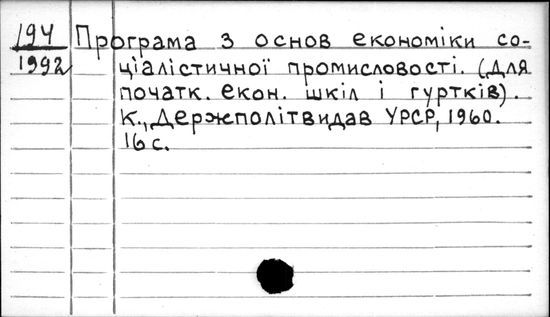 194
1992
Програма з основ економіки со-
ціалістичної промисловості. (Для
початк. екон. шкіл і гуртків).
К., Держполітвидав УРСР, 1960.
16 с.